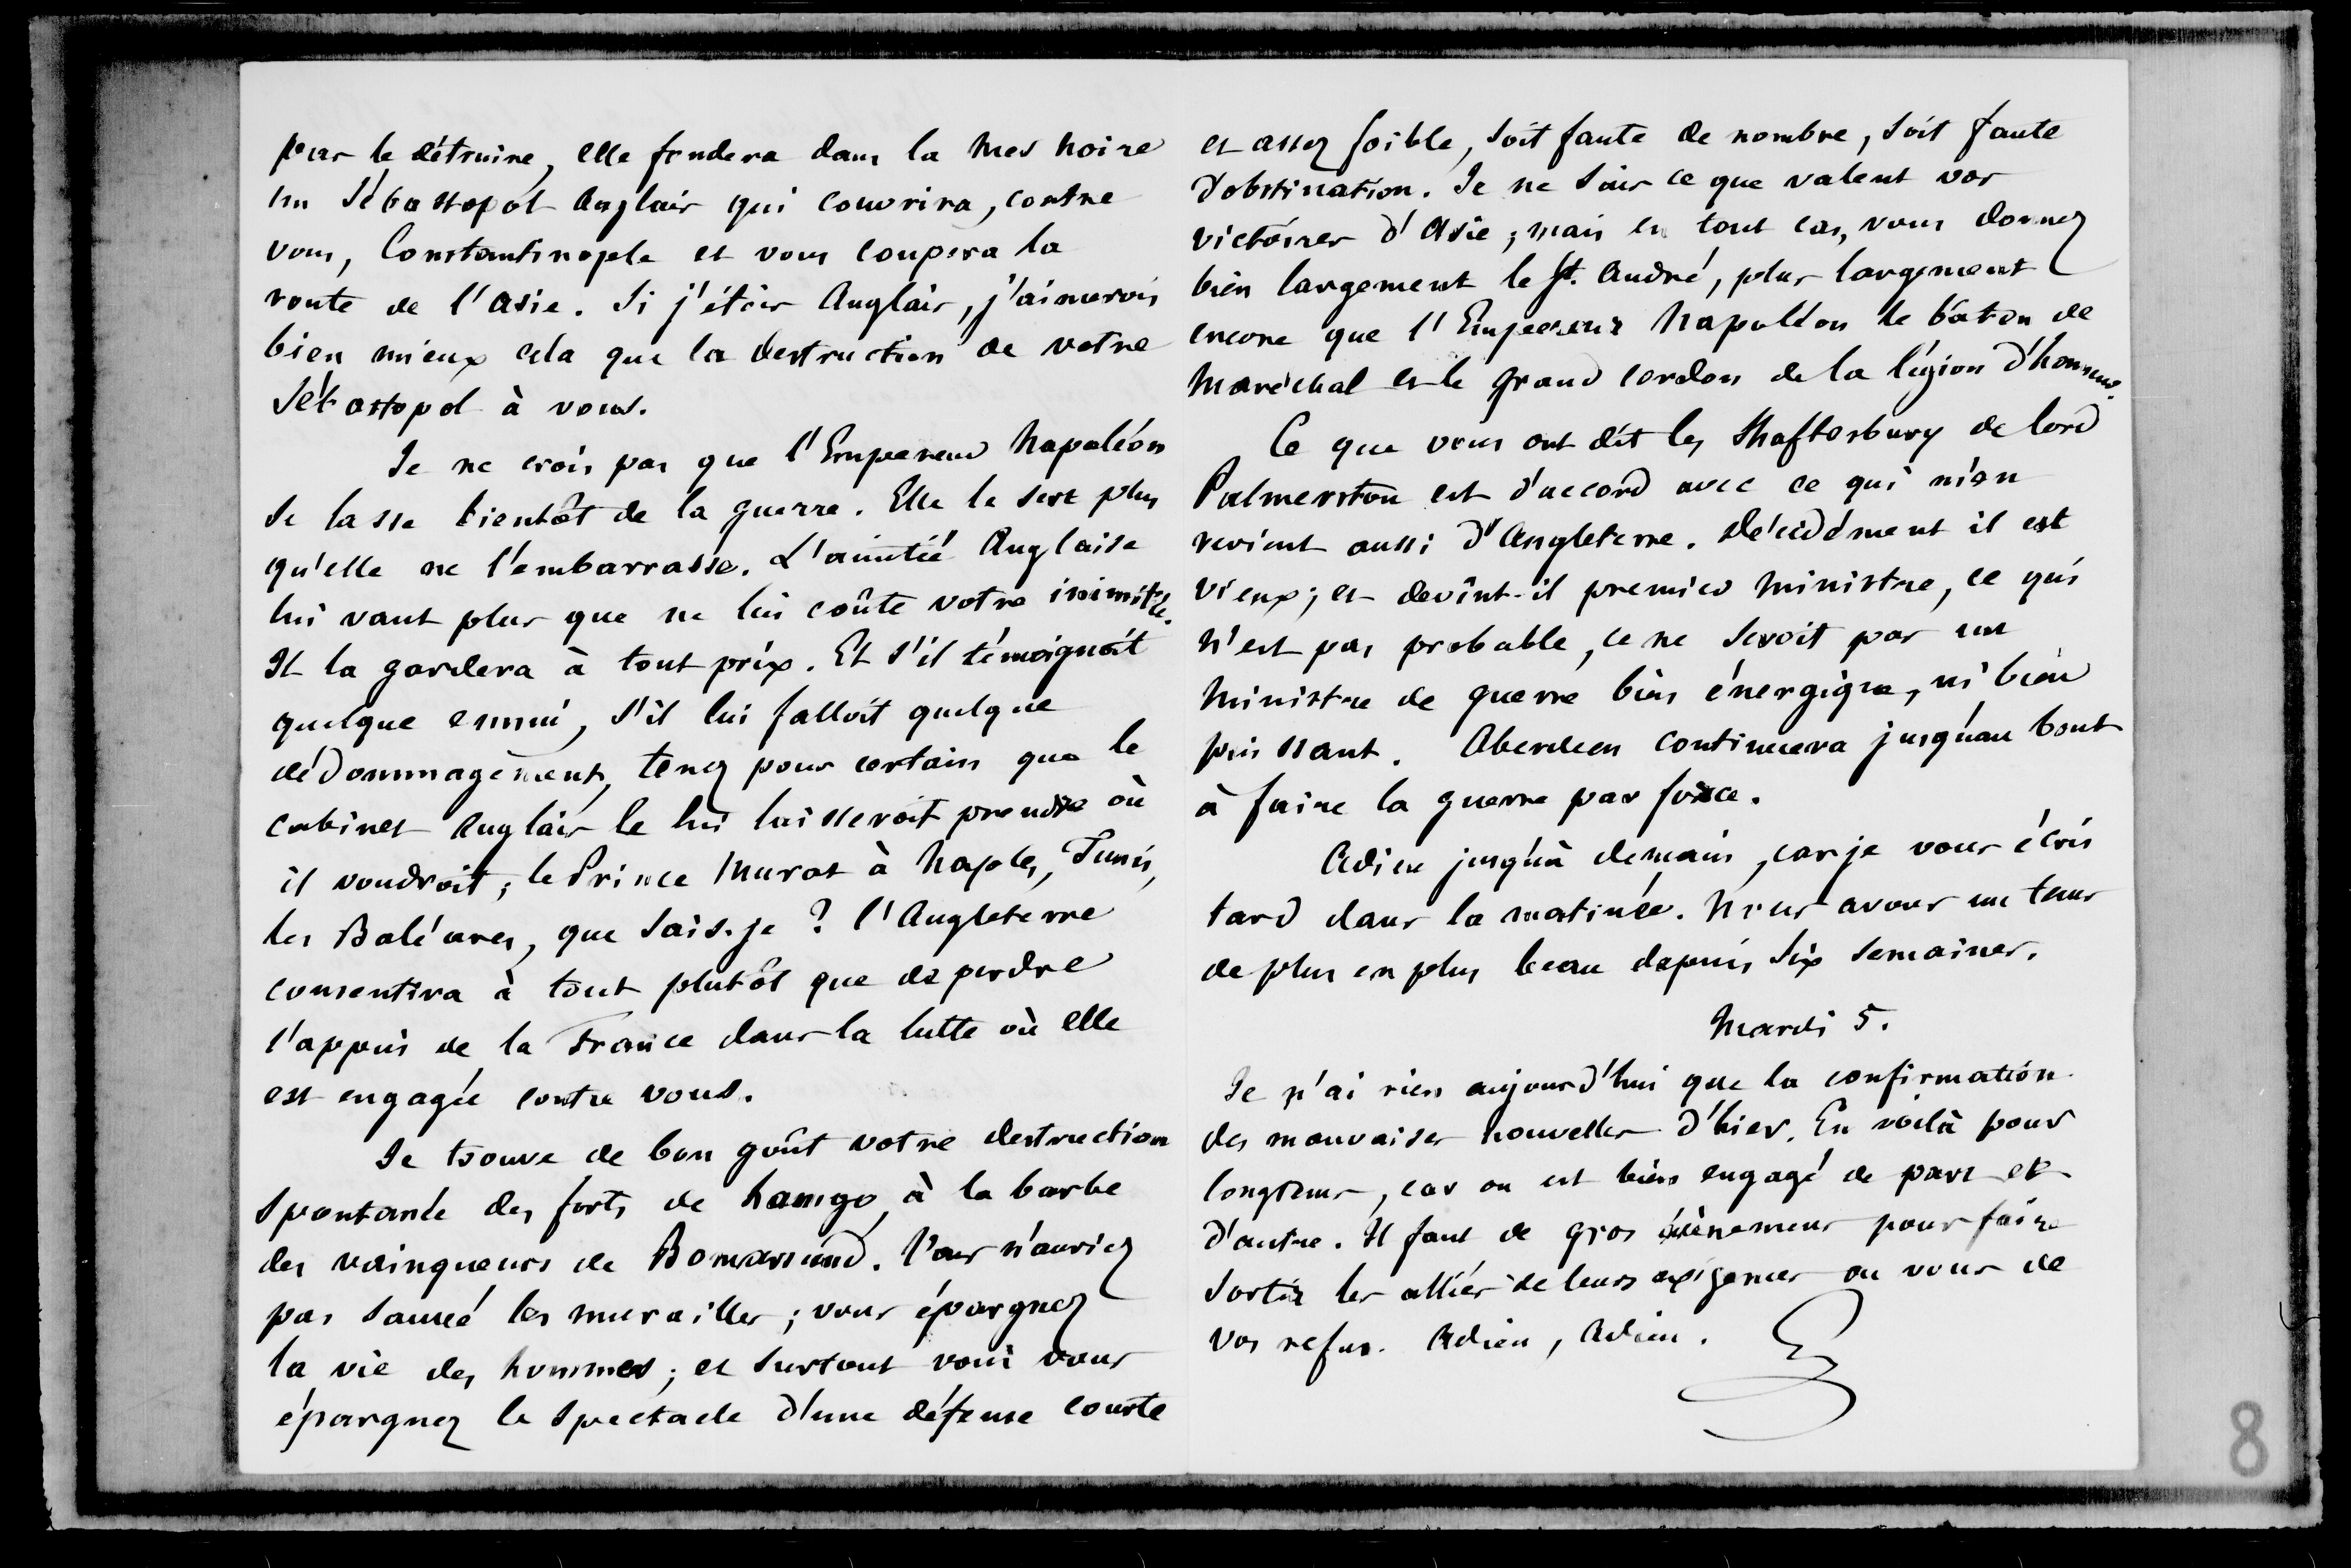 pas le détruire, elle fondera dans la mer noire
un Sébastopol Anglais qui couvrira, contre
vous, Constantinople et vous coupera la
route de l'Asie. Si j'étois Anglais, j'aimerois
bien mieux cela que la destruction de votre
Sébastopol à vous.
Je ne crois pas que l'Empereur Napoléon
se lasse bientôt de la guerre. Elle le sert plus
qu'elle ne l'embarrasse. L'amitié Anglaise
lui vaut plus que ne lui coûte votre inimitié.
Il la gardera à tout prix. Et s'il témoignoit
quelque ennui, s'il lui falloit quelque
dédommagement, tenez pour certain que le
cabinet anglais le lui laisseroit prendre où
il voudroit ; le Prince Murat à Naples, Tunis,
les Baléares, que sais-je ? l'Angleterre
consentira à tout plutôt que de perdre
l'appui de la France dans la lutte où elle
est engagée contre vous.
Je trouve de bon goût votre destruction
spontanée des forts de hango, à la barbe
des vainqueurs de Bomarsund. Vous n'auriez
pas sauvé les murailles ; vous épargnez
la vie des hommes ; et surtout vous vous
épargnez le spectacle d'une défense courte
et assez foible, soit faute de nombre, soit faute
d'obstination. Je ne sais ce que valent vos
victoires d'Asie ; mais en tout cas, vous donnez
bien largement le St. André, plus largement
encore que l'Empereur Napoléon le bâton de
Maréchal et le grand cordon de la légion d'honneur.
Ce que vous ont dit les Shaftesbury de lord
Palmerston est d'accord avec ce qui m'en
revient aussi d'Angleterre. Décidément il est
vieux ; et devînt-il premier Ministre, ce qui
n'est pas probable, ce ne seroit pas un
Ministre de guerre bien énergique, ni bien
puissant. Aberdeen continuera jusqu'au bout
à faire la guerre par force.
Adieu jusqu'à demain, car je vous écris
tard dans la matinée. Nous avons un tems
de plus en plus beau depuis six semaines.
Mardi 5.
Je n'ai rien aujourd'hui que la confirmation
des mauvaises nouvelles d'hier. En voilà pour
longtems, car on est bien engagé de part et
d'autre. Il faut de gros évènemens pour faire
sortir les alliés de leurs exigences ou vous de
vos refus. Adieu, Adieu.
8